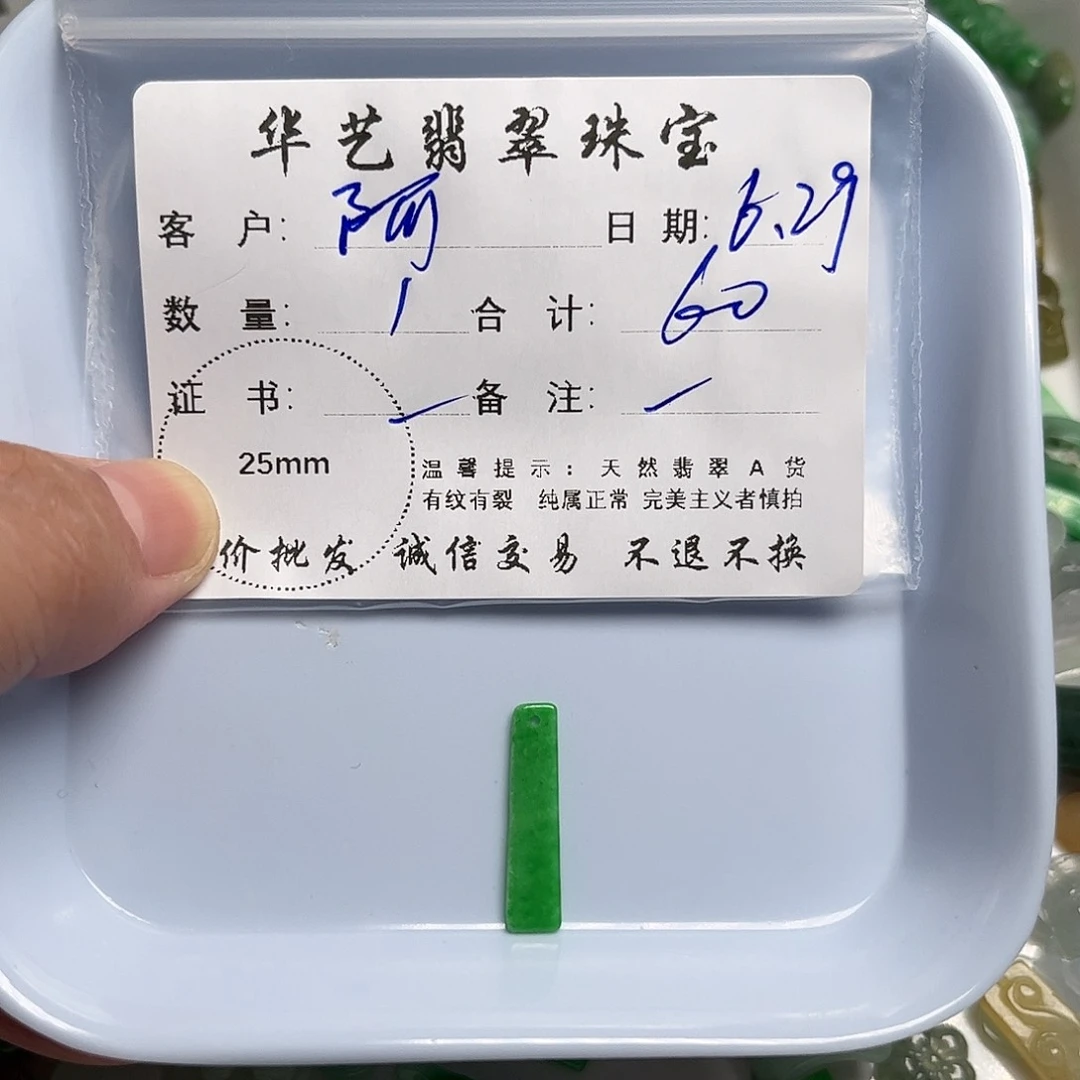 华艺翡翠珠宝
客 户: 阿 日 期: 6.29
数 量: 1 合 计: 60
证 书: 备 注:
25mm
温馨提示: 天然翡翠A货
有纹有裂 纯属正常 完美主义者慎拍
价批发 诚信交易 不退不换